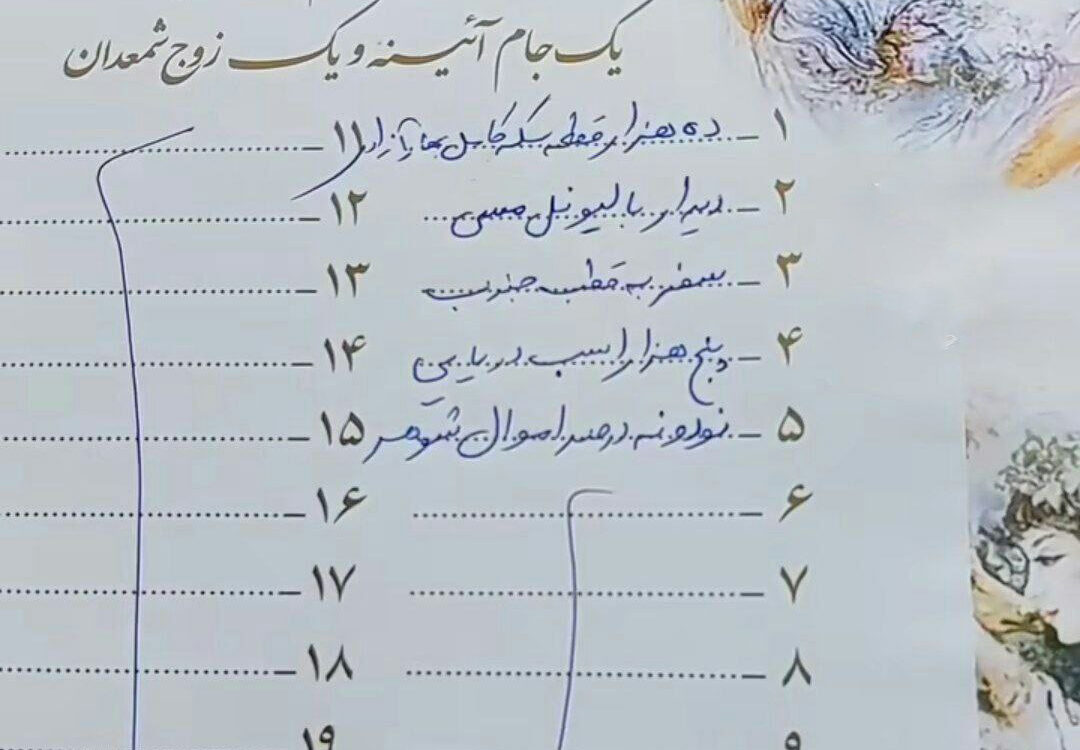 یک جام آئینه و یک زوج شمعدان
۱ - ده هزار قطعه سکه کامل بهار آزادی
۲ - دیدار با لیونل مسی
۳ - سفر به قطب جنوب
۴ - پنج هزار اسب دریایی
۵ - نود و نه درصد اموال شوهر
۶ -
۷ -
۸ -
۹
۱۱ -
۱۲ -
۱۳ -
۱۴ -
۱۵ -
۱۶ -
۱۷ -
۱۸ -
۱۹